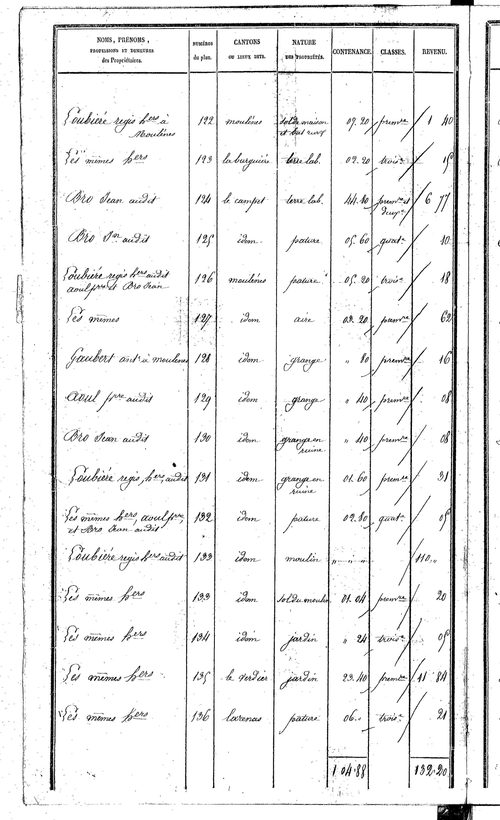 NOMS, PRÉNOMS, PROFESSIONS ET DEMEURES des Propriétaires. | NUMÉROS du plan. | CANTONS OU LIEUX DITS. | NATURE DES PROPRIÉTÉS. | CONTENANCE. | CLASSES. | REVENU.
Loubiéré regis hers à Moulines | 122 | moulines | sol de maison et bat rury | 09.20 | premre | 1 40
Les mêmes hers | 123 | laburguiere | terre lab. | 02.20 | trois. | 15
Bro Jean audit | 124 | le campet | terre lab. | 44.80 | premre et deux. | 6 77
Bro Jn audit | 125 | idem | pature | 05.60 | quat. | 10
Loubiéré regis hers audit aoul pre et Bro Jean | 126 | moulines | pature | 05.20 | trois. | 18
Les mêmes | 127 | idem | aire | 03.20 | premre | 62
Gaubert ant. à moulines | 128 | idem | grange | " 80 | premre | 16
Aoul pre audit | 129 | idem | grange | " 40 | premre | 08
Bro Jean audit | 130 | idem | grange en ruine | " 40 | premre | 08
Loubiére regis, hers, audit | 131 | idem | grange en ruine | 01.60 | premre | 31
Les mêmes hers, aoul pre, et Bro Jean audit | 132 | idem | pature | 02.80 | quat. | 05
Loubiére regis hers audit | 133 | idem | moulin | " " " | 110 "
Les mêmes hers | 133 | idem | sol du moulin | 01.04 | premre | 20
Les mêmes hers | 134 | idem | jardin | " 24 | trois. | 05
Les mêmes hers | 135 | le verdier | jardin | 23.40 | premre | 11 84
Les mêmes hers | 136 | lavenas | pature | 06. | trois. | 21
1 04.88 | 132.20